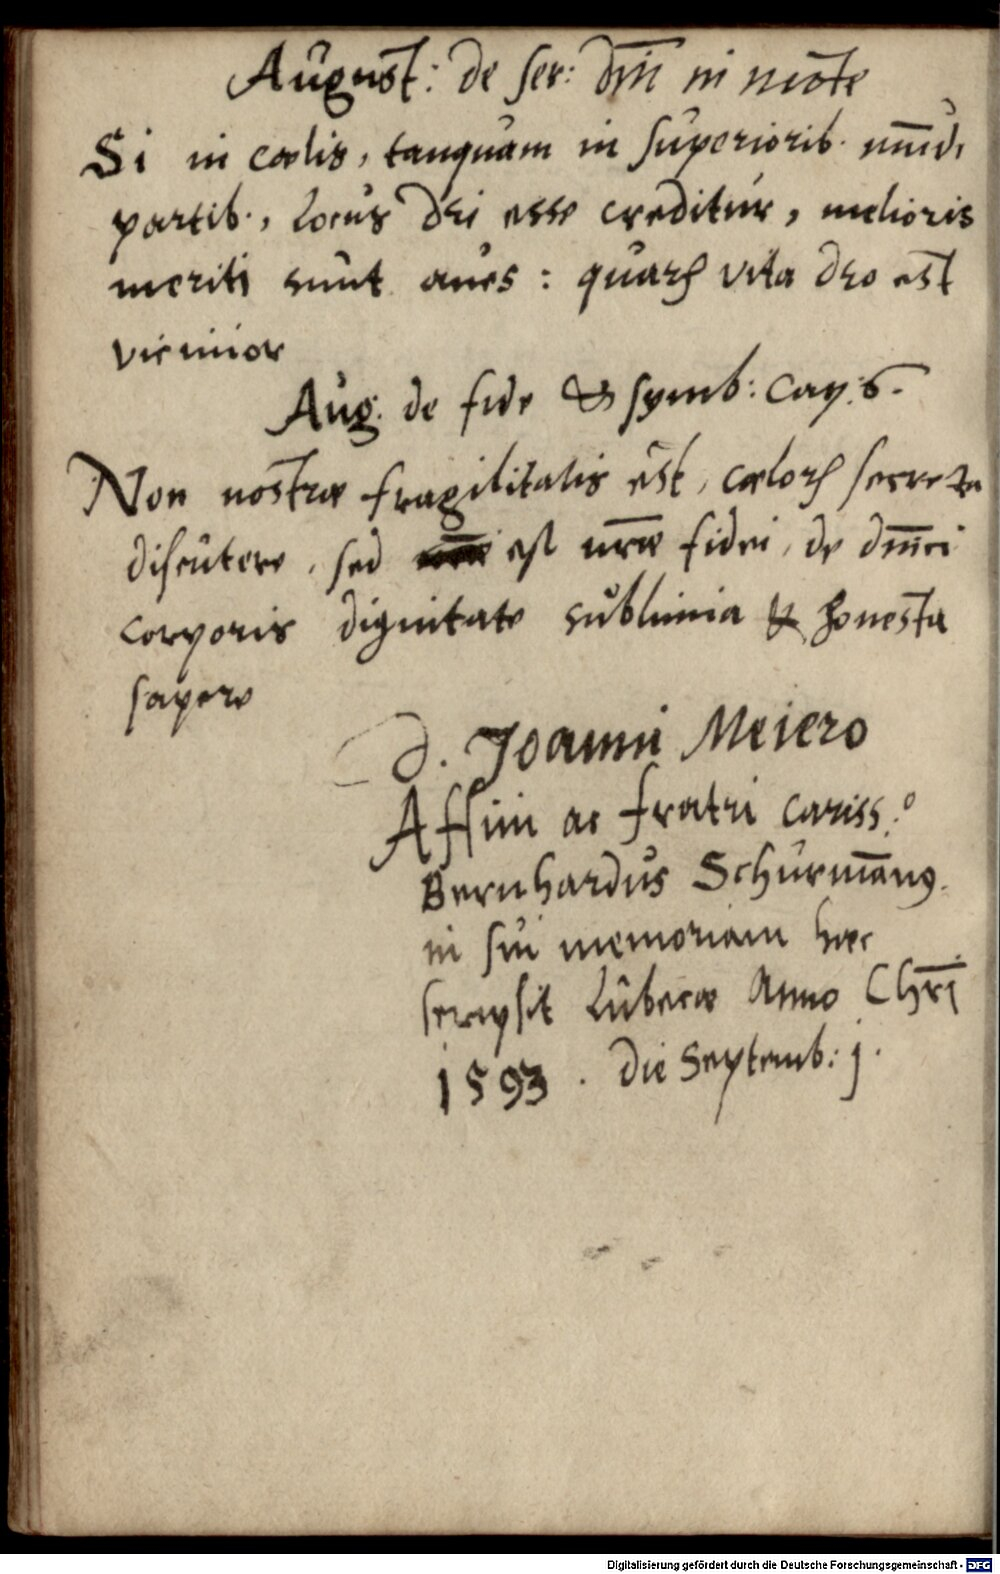 August: de ser: dn̄i in mōte
Si in cœlis, tanquam in superiorib. mūdi
partib., locus Dei esse creditur, melioris
meriti sunt aues: quarꝝ vita Deo est
vicinior
Aug. de fide & symb: Cap: 6.
Non nostræ fragilitatis est, cœlorꝝ secreta
discutere, sed est nr̄æ fidei, de dn̄ici
corporis dignitate sublimia & honesta
sapere
D. Joanni Meiero
Affini ac fratri cariss:º
Bernhardus Schürmānꝰ.
in sui memoriam hæc
scripsit Lubecæ Anno Chr̄i
1593. die Septemb: j.
Digitalisierung gefördert durch die Deutsche Forschungsgemeinschaft - DFG